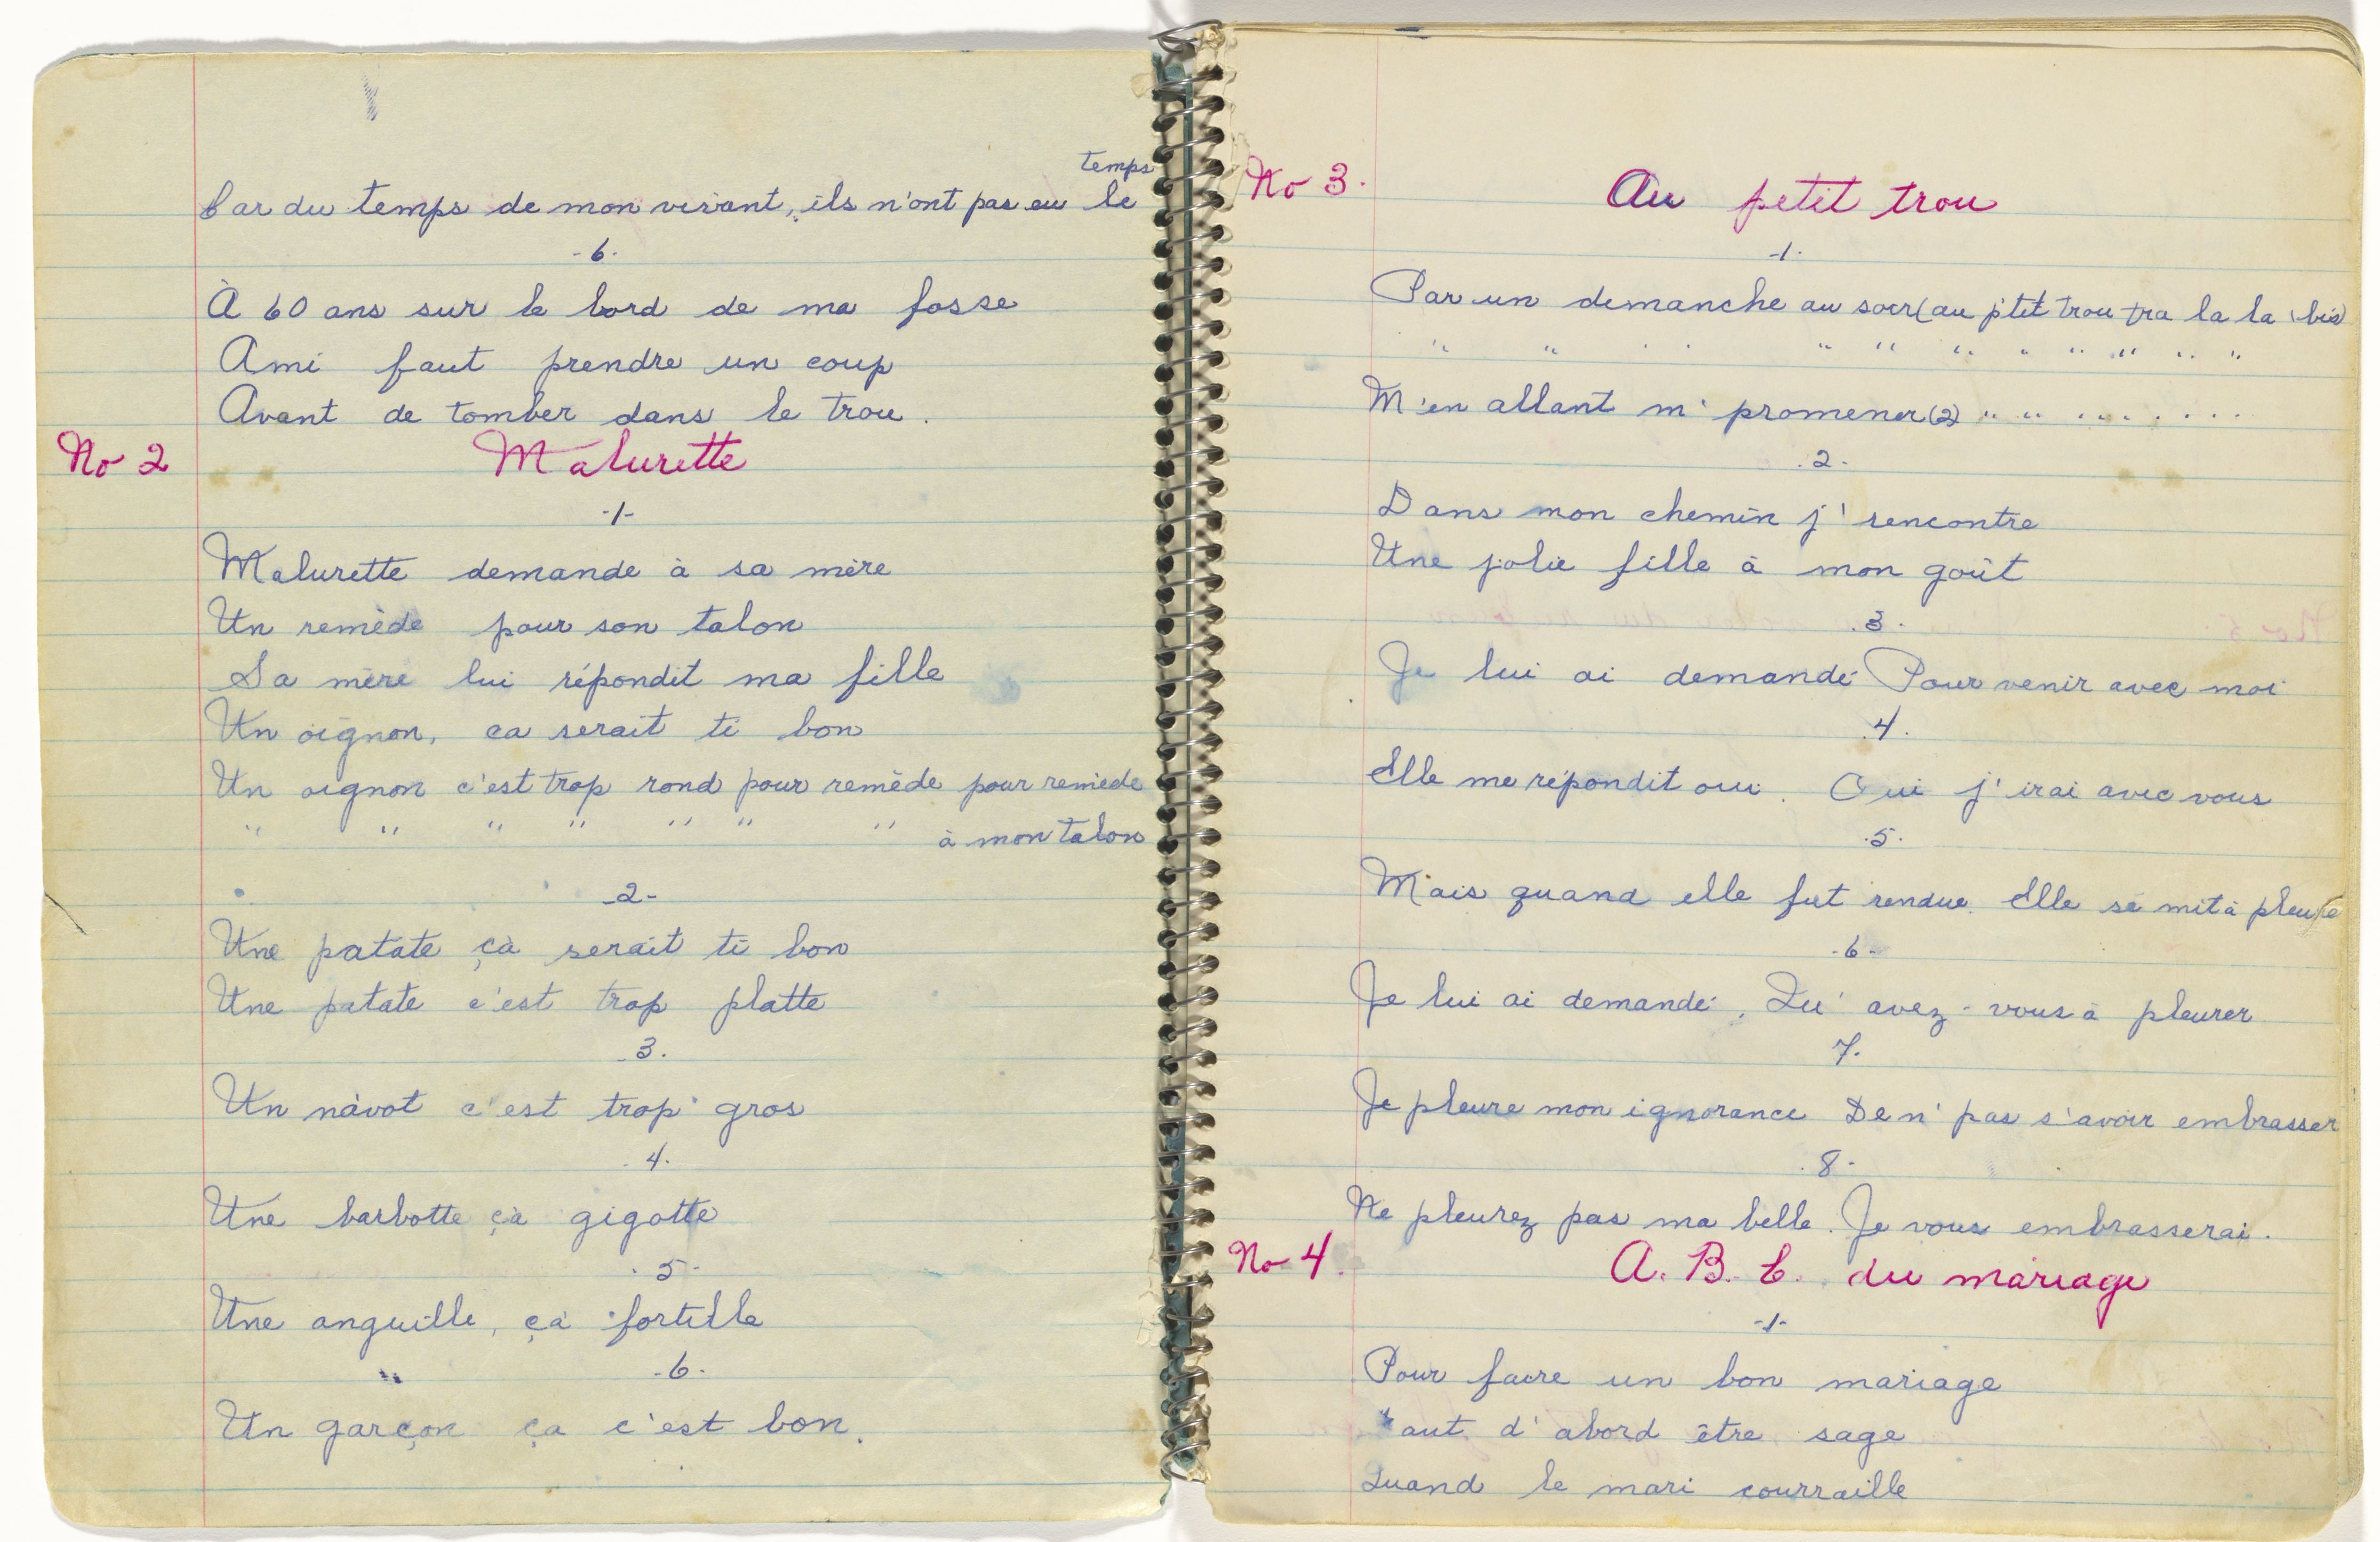 temps
Car du temps de mon vivant, ils n'ont pas eu le
-6-
À 60 ans sur le bord de ma fosse
Ami faut prendre un coup
Avant de tomber dans le trou.
No 2 Malurette
-1-
Malurette demande à sa mère
Un remède pour son talon
Sa mère lui répondit ma fille
Un oignon, ca serait ti bon
Un oignon c'est trop rond pour remède pour remède
" " " " " " " à mon talon
-2-
Une patate çà serait ti bon
Une patate c'est trop platte
-3.
Un nàvot c'est trop gros
.4.
Une barbotte çà gigotte
.5-
Une anguille, çà fortille
" -6-
Un garçon ça c'est bon.
No 3. Au petit trou
-1.
Par un dimanche au soir (au p'tit trou tra la la (bis)
" " " " " " " " " " " "
M'en allant m' promener (2) " " " " " " " "
.2.
Dans mon chemin j' rencontre
Une jolie fille à mon goût
.3.
Je lui ai demandé Pour venir avec moi
.4.
Elle me répondit oui. Oui j'irai avec vous
.5.
Mais quand elle fut rendue. Elle se mit à pleure
-6-
Je lui ai demandé, Qu' avez-vous à pleurer
7.
Je pleure mon ignorance De n' pas s'avoir embrasser
.8.
Ne pleurez pas ma belle. Je vous embrasserai.
No 4. A. B. C. du mariage
-1-
Pour faire un bon mariage
Faut d'abord être sage
Quand le mari courraille